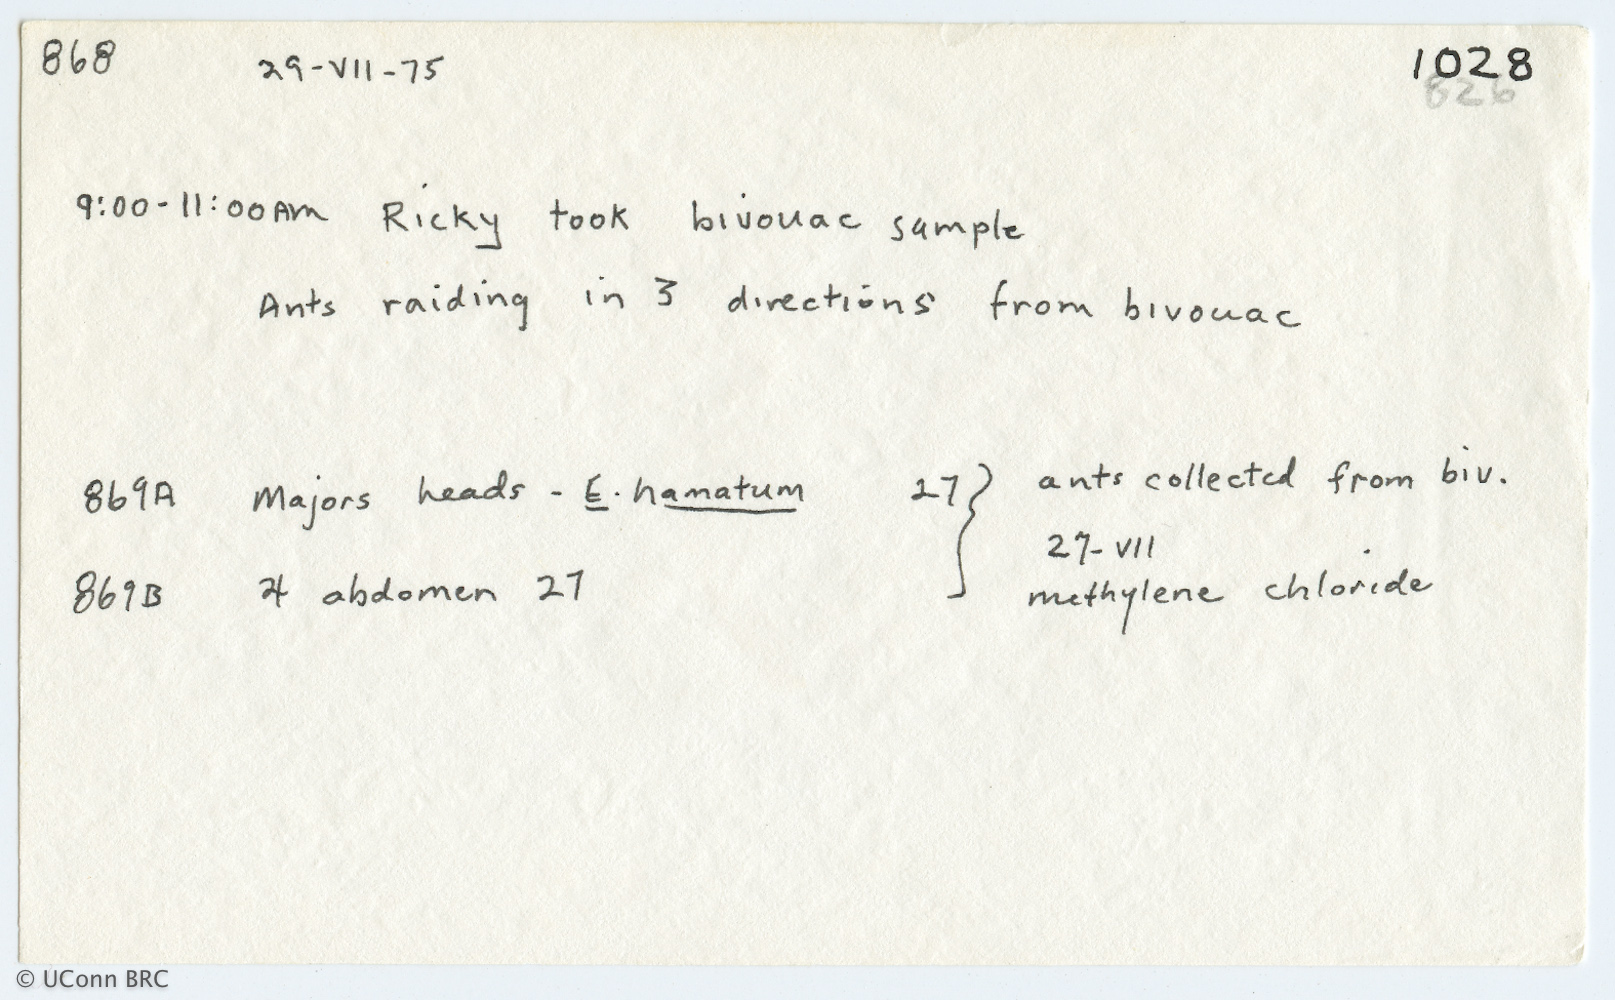 868 29-VII-75 1028
826
9:00-11:00AM Ricky took bivouac sample
Ants raiding in 3 directions from bivouac
869A Majors heads - E. hamatum 27 } ants collected from biv.
27-VII
869B abdomen 27 methylene chloride
© UConn BRC